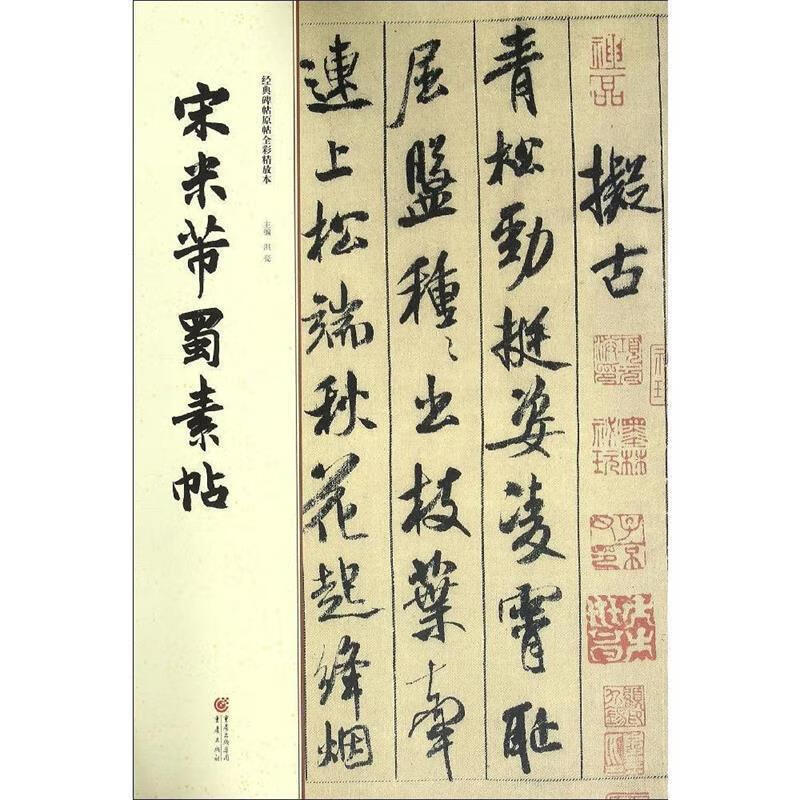 宋米芾蜀素帖
经典碑帖原帖全彩精放本
主编 洪亮
重庆出版集团
重庆出版社
神品
擬古
青松勁挺姿凌霄耻
屈盤種〻出枝葉牽
連上松端秋花起絳烟
墨林秘玩
子京父印